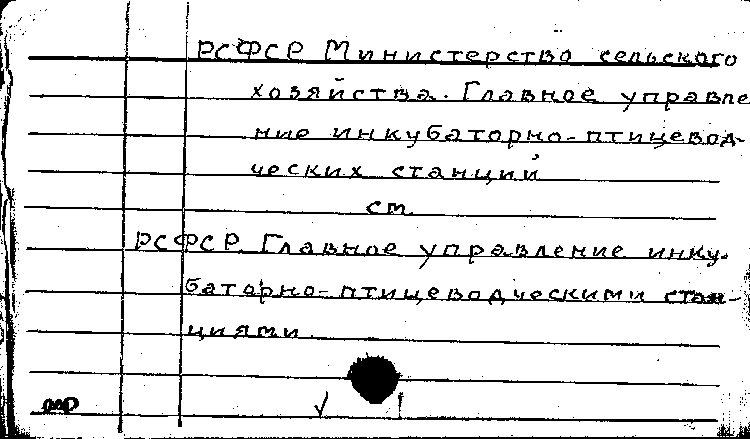 РСФСР Министерство сельского
хозяйства. Главное управле
ние инкубаторно-птицевод-
ческих станций
см.
РСФСР Главное управление инку-
баторно-птицеводческими стан-
циями.